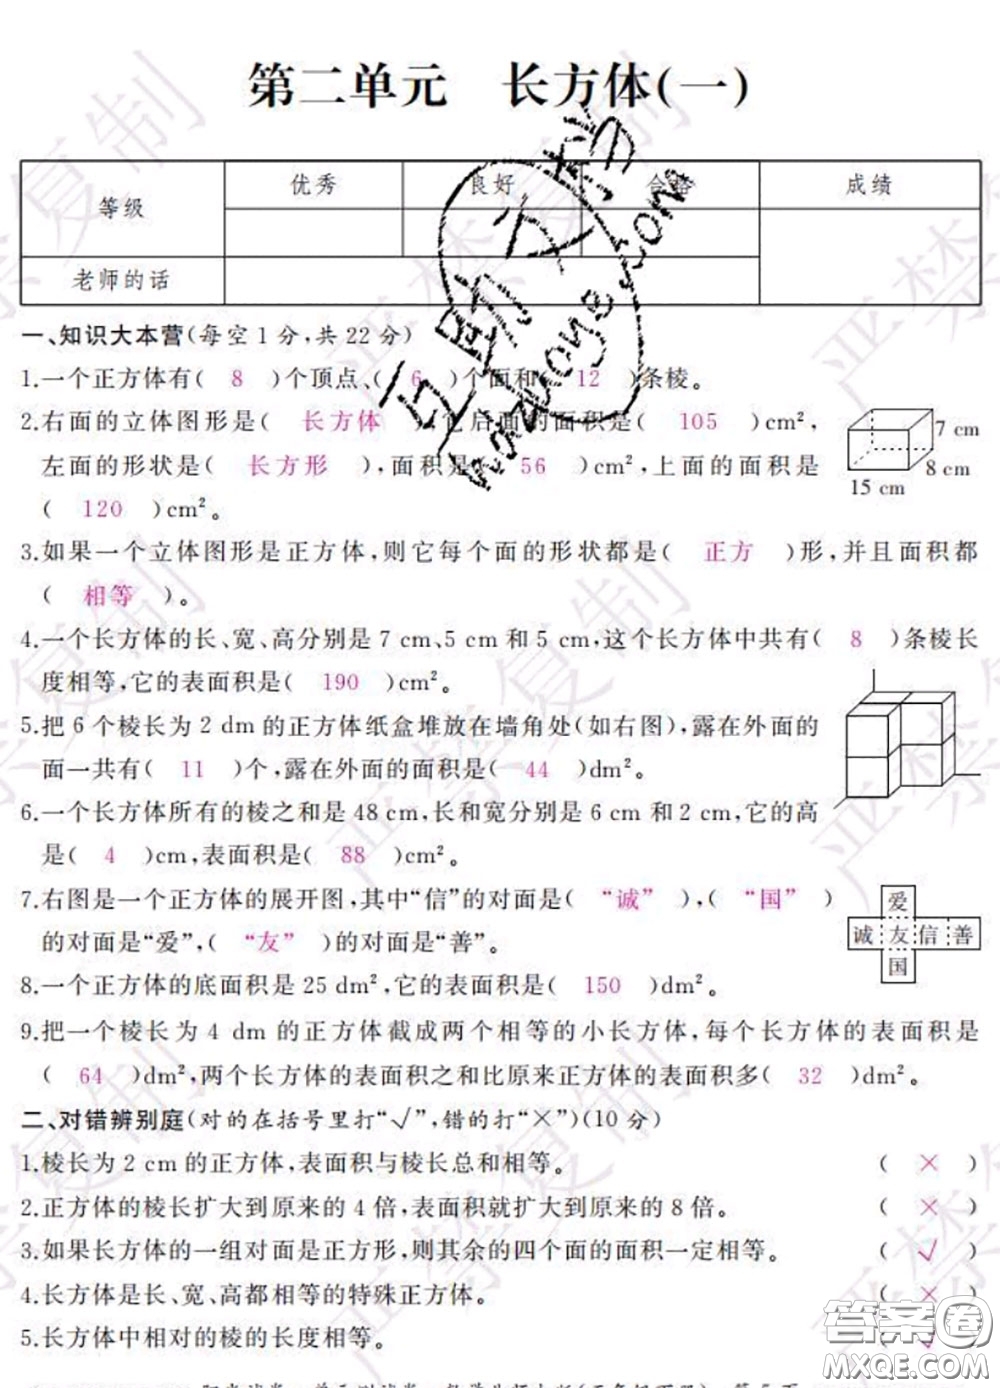 第二单元 长方体(一)
等级 优秀 良好 合格 成绩
老师的话
一、知识大本营(每空1分,共22分)
1.一个正方体有( 8 )个顶点、( 6 )个面和( 12 )条棱。
2.右面的立体图形是( 长方体 ),它后面的面积是( 105 )cm²,
左面的形状是( 长方形 ),面积是( 56 )cm²,上面的面积是
( 120 )cm²。
7 cm
8 cm
15 cm
3.如果一个立体图形是正方体,则它每个面的形状都是( 正方 )形,并且面积都
( 相等 )。
4.一个长方体的长、宽、高分别是7 cm、5 cm和5 cm,这个长方体中共有( 8 )条棱长
度相等,它的表面积是( 190 )cm²。
5.把6个棱长为2 dm的正方体纸盒堆放在墙角处(如右图),露在外面的
面一共有( 11 )个,露在外面的面积是( 44 )dm²。
6.一个长方体所有的棱之和是48 cm,长和宽分别是6 cm和2 cm,它的高
是( 4 )cm,表面积是( 88 )cm²。
7.右图是一个正方体的展开图,其中“信”的对面是( “诚” ),( “国” )
的对面是“爱”,( “友” )的对面是“善”。
爱
诚 友 信 善
国
8.一个正方体的底面积是25 dm²,它的表面积是( 150 )dm²。
9.把一个棱长为4 dm的正方体截成两个相等的小长方体,每个长方体的表面积是
( 64 )dm²,两个长方体的表面积之和比原来正方体的表面积多( 32 )dm²。
二、对错辨别庭(对的在括号里打“√”,错的打“×”)(10分)
1.棱长为2 cm的正方体,表面积与棱长总和相等。 ( × )
2.正方体的棱长扩大到原来的4倍,表面积就扩大到原来的8倍。 ( × )
3.如果长方体的一组对面是正方形,则其余的四个面的面积一定相等。 ( √ )
4.长方体是长、宽、高都相等的特殊正方体。 ( × )
5.长方体中相对的棱的长度相等。 ( √ )
答案圈
MXQE.COM
严禁复制